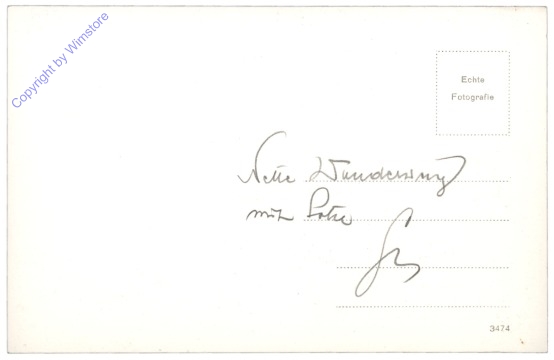 Copyright by Wimstore
Echte
Fotografie
Nette Wanderung
mit
3474